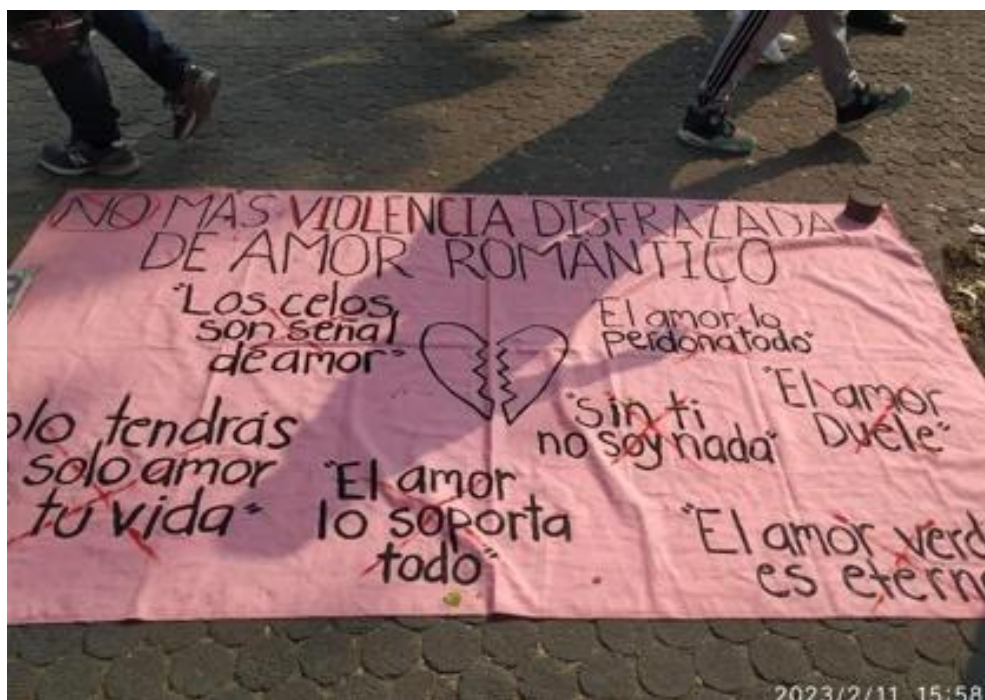 NO MÁS VIOLENCIA DISFRAZADA
DE AMOR ROMÁNTICO
"Los celos
son señal
de amor"
El amor lo
perdona todo"
"El amor
Duele"
"Sin ti
no soy nada"
tendrás
solo amor
tu vida"
"El amor
lo soporta
todo"
"El amor
es
2023/2/11 15:58